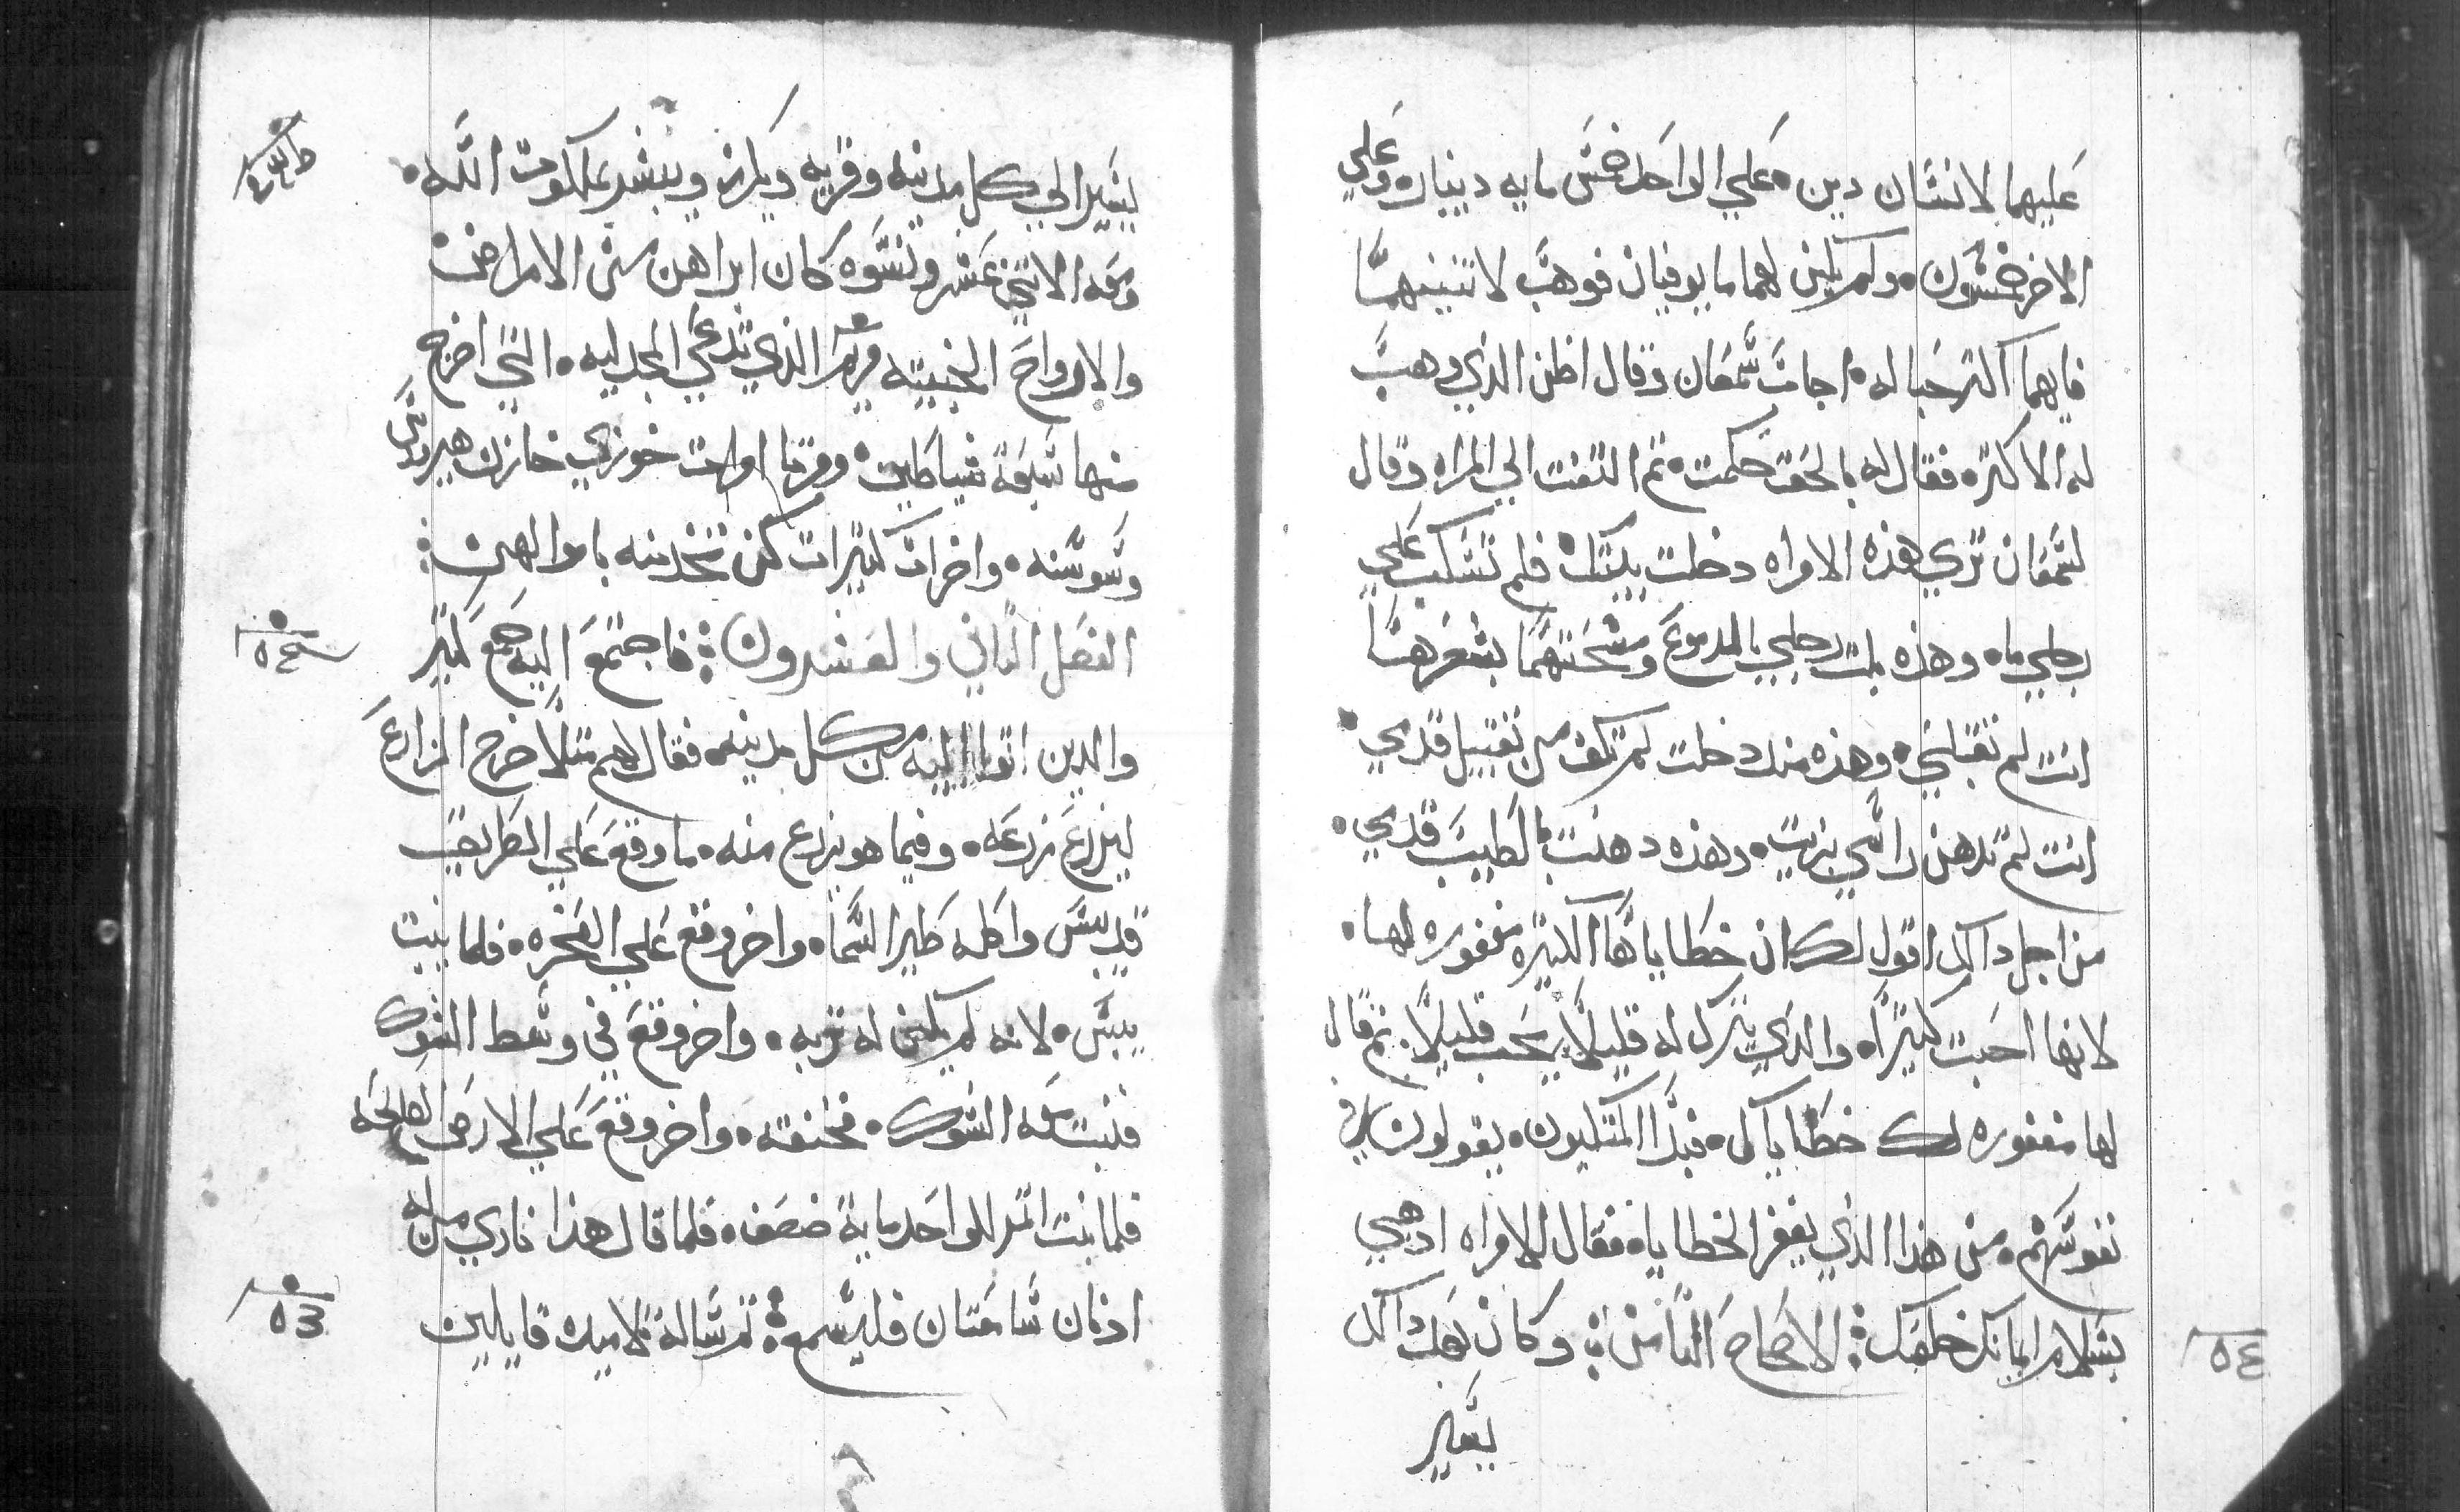 عليهما لانسان دين. علي الواحد خمس مايه دينار. وعلي
الاخر خمسون. ولم يكن لهما ما يوفيان فوهب لاتنينهما
فايهما اكتر حبا له. اجاب سمعان وقال اظن الذي وهب
له الاكتر. فقال له بالحق حكمت. تم التفت الي المراه وقال
لسمعان تري هذه الامراه دخلت بيتك فلم تسكب علي
رجلي ما. وهذه بلت رجلي بالدموع ومسحتهما بشعرها
انت لم تقبلني. وهذه منذ دخلت لم تكف من تقبيل قدمي.
انت لم تدهن راسي بزيت. وهذه دهنت بالطيب قدمي.
من اجل داك اقول لك ان خطاياها الكتيره مغفوره لها.
لانها احبت كتيرًا. والدي يترك له قليلًا يحب قليلًا. تم قال
لها مغفوره لك خطاياك. فبدا المتكيون. يقولون في
نفوسهم. من هذا الذي يغفر الخطايا. فقال للامراه ادهبي
بسلام ايمانك خلصك: الاصحاح التامن: وكان بعد داك
يسير
٥٤
يسير الي كل مدينه وقريه ويكرز ويبشر بملكوت الله.
ومعه الاتني عشر ونسوه كان ابراهن من الامراض
والارواح الخبيته مريم الذي تدعي المجدليه. التي اخرج
منها سبعة شياطين. ومرتا امرات خوزي خازن هيرودس
وسوسنه. واخرات كتيرات كن تخدمنه باموالهن:
الفصل التاني والعشرون: فاجتمع اليه جمع كتير
والدين اتوا اليه من كل مدينه. فقال لهم متلًا خرج الزارع
ليزرع زرعه. وفيما هو يزرع منه. ما وقع علي الطريق
فديس واكله طير السما. واخر وقع علي الصخره. فلما نبت
يبس. لانه لم يكن له تربه. واخر وقع في وسط الشوك
فنبت معه الشوك. فخنقه. واخر وقع علي الارض الصالحه
فلما نبت اتمر للواحد ماية ضعف. فلما قال هذا نادي من له
ادنان سامعتان فليسمع: تم ساله تلاميده قايلين